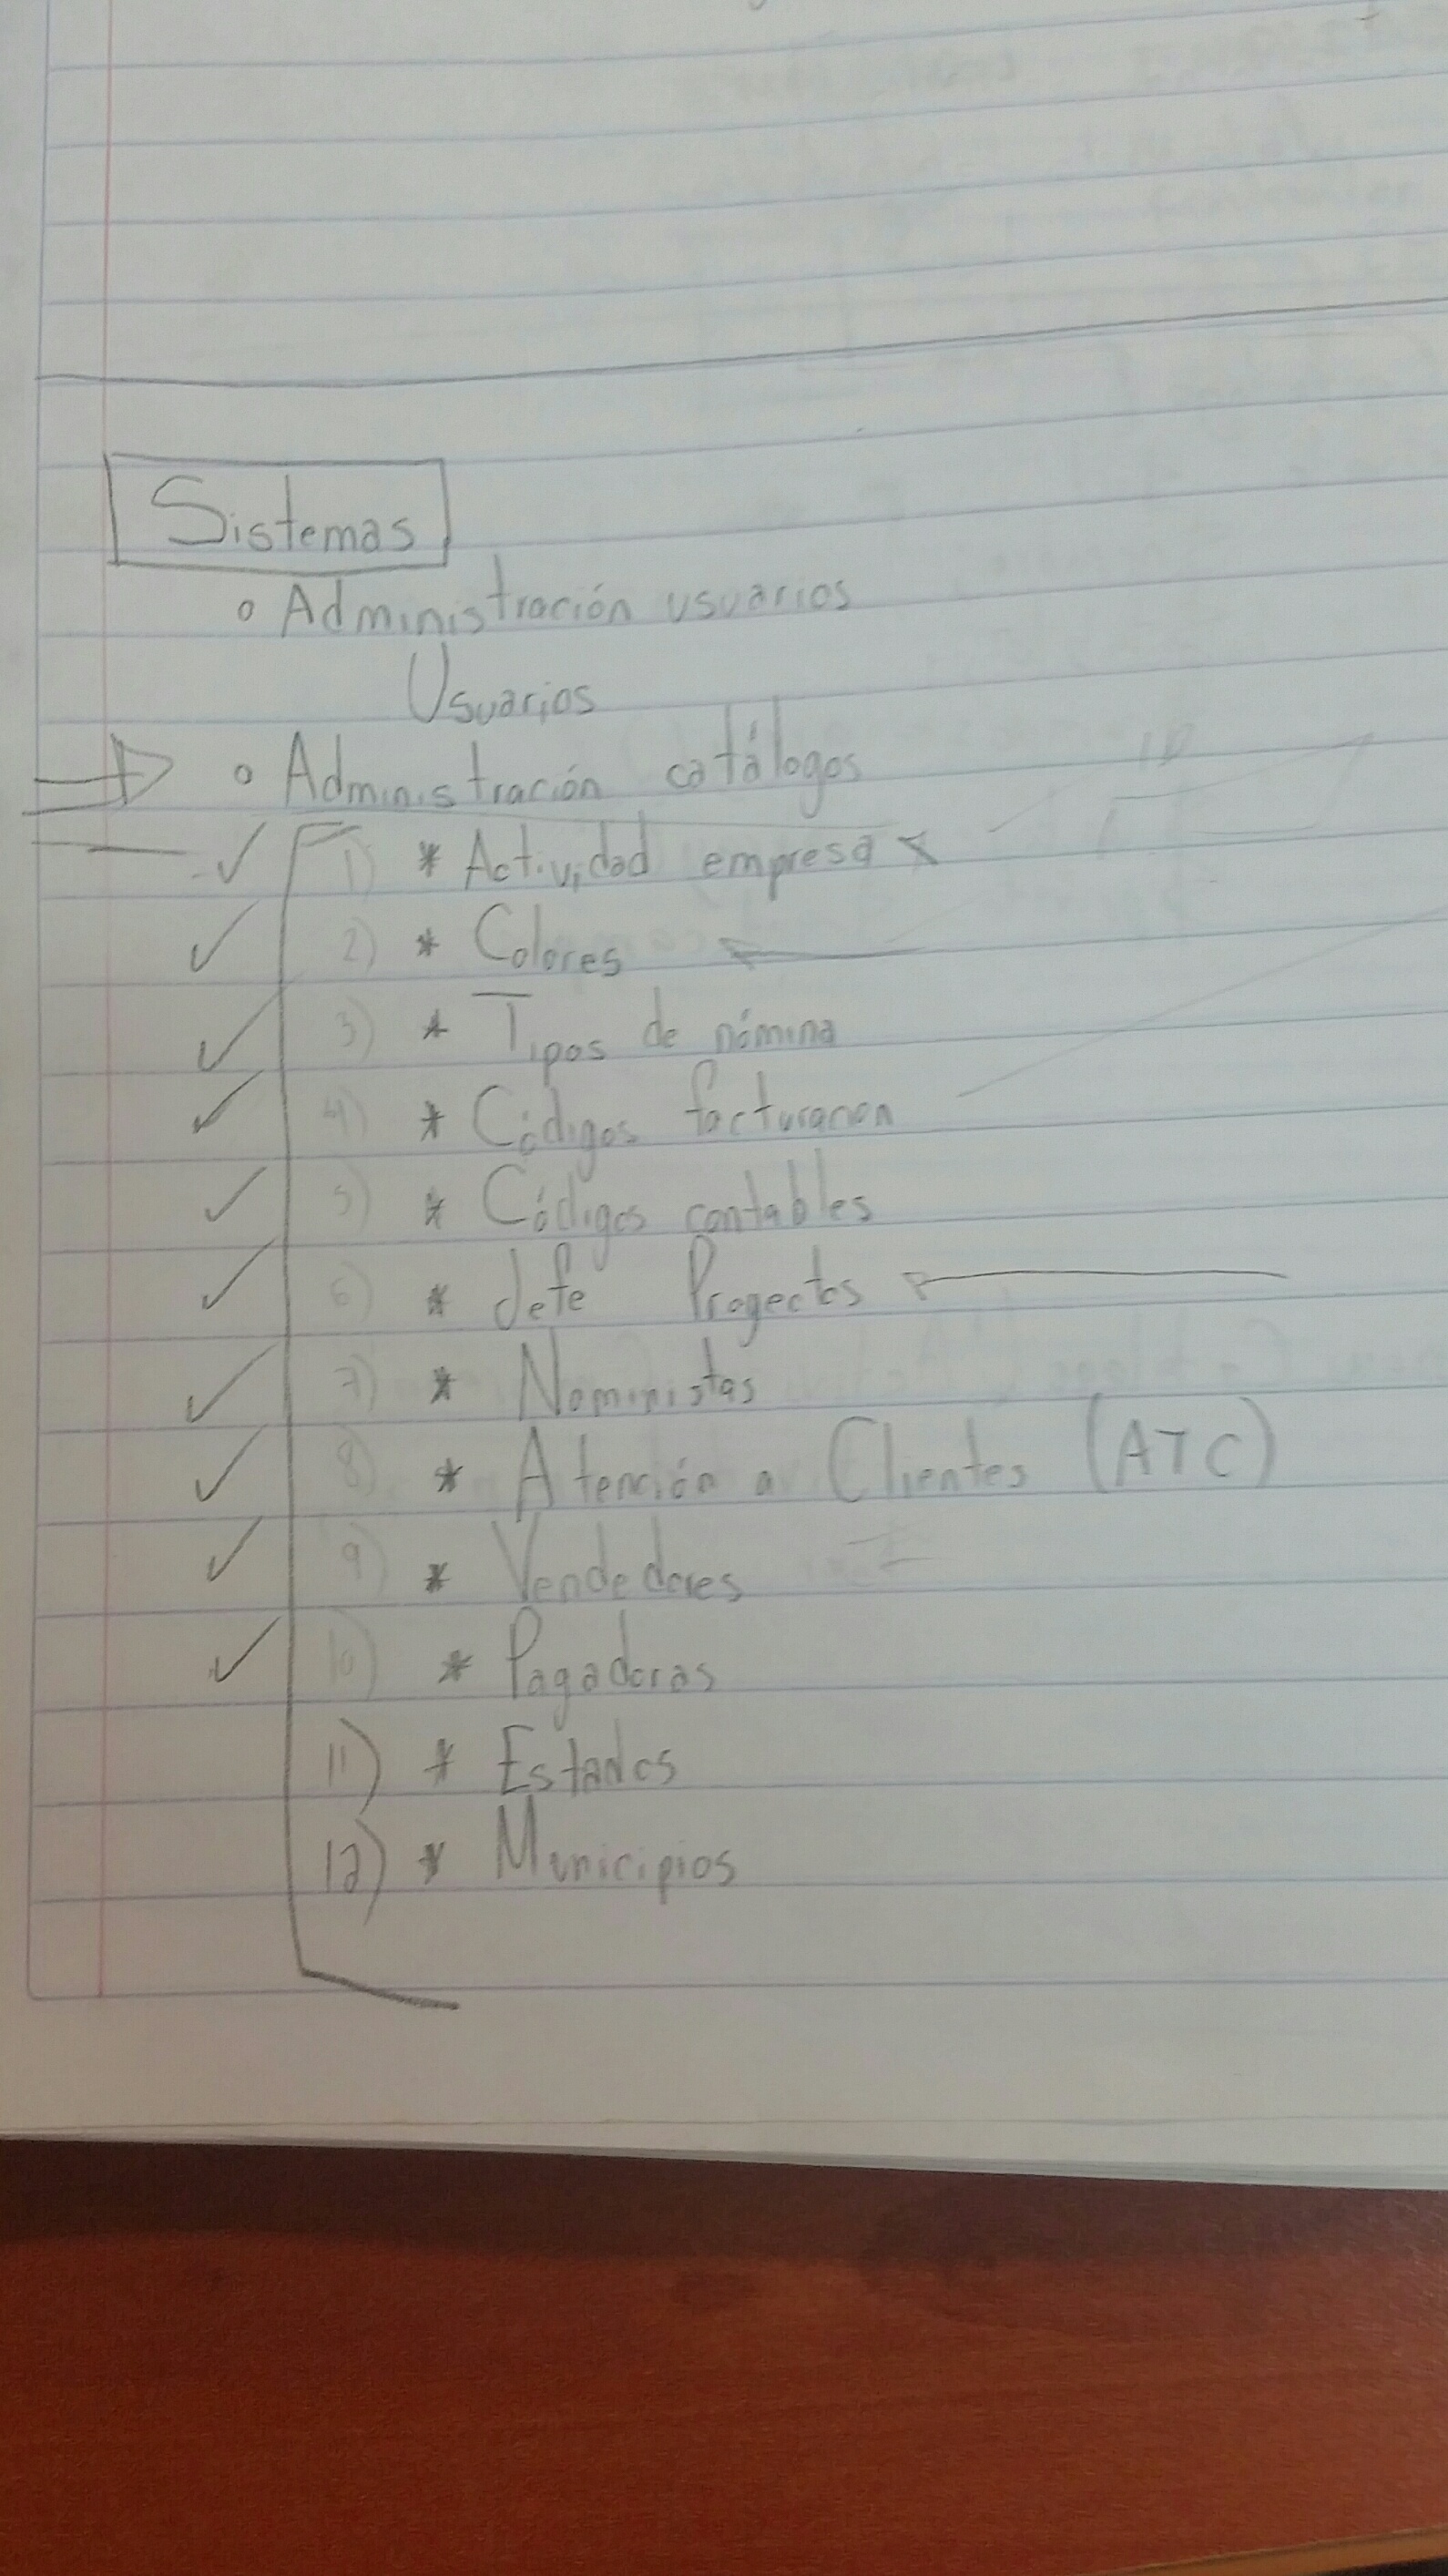 Sistemas
o Administración usuarios
Usuarios
o Administración catálogos
1) * Actividad empresa x
2) * Colores
3) * Tipos de nómina
4) * Códigos facturacion
5) * Códigos contables
6) * Jefe Proyectos
7) * Noministas
8) * Atención a Clientes (ATC)
9) * Vendedores
10) * Pagadoras
11) * Estados
12) * Municipios